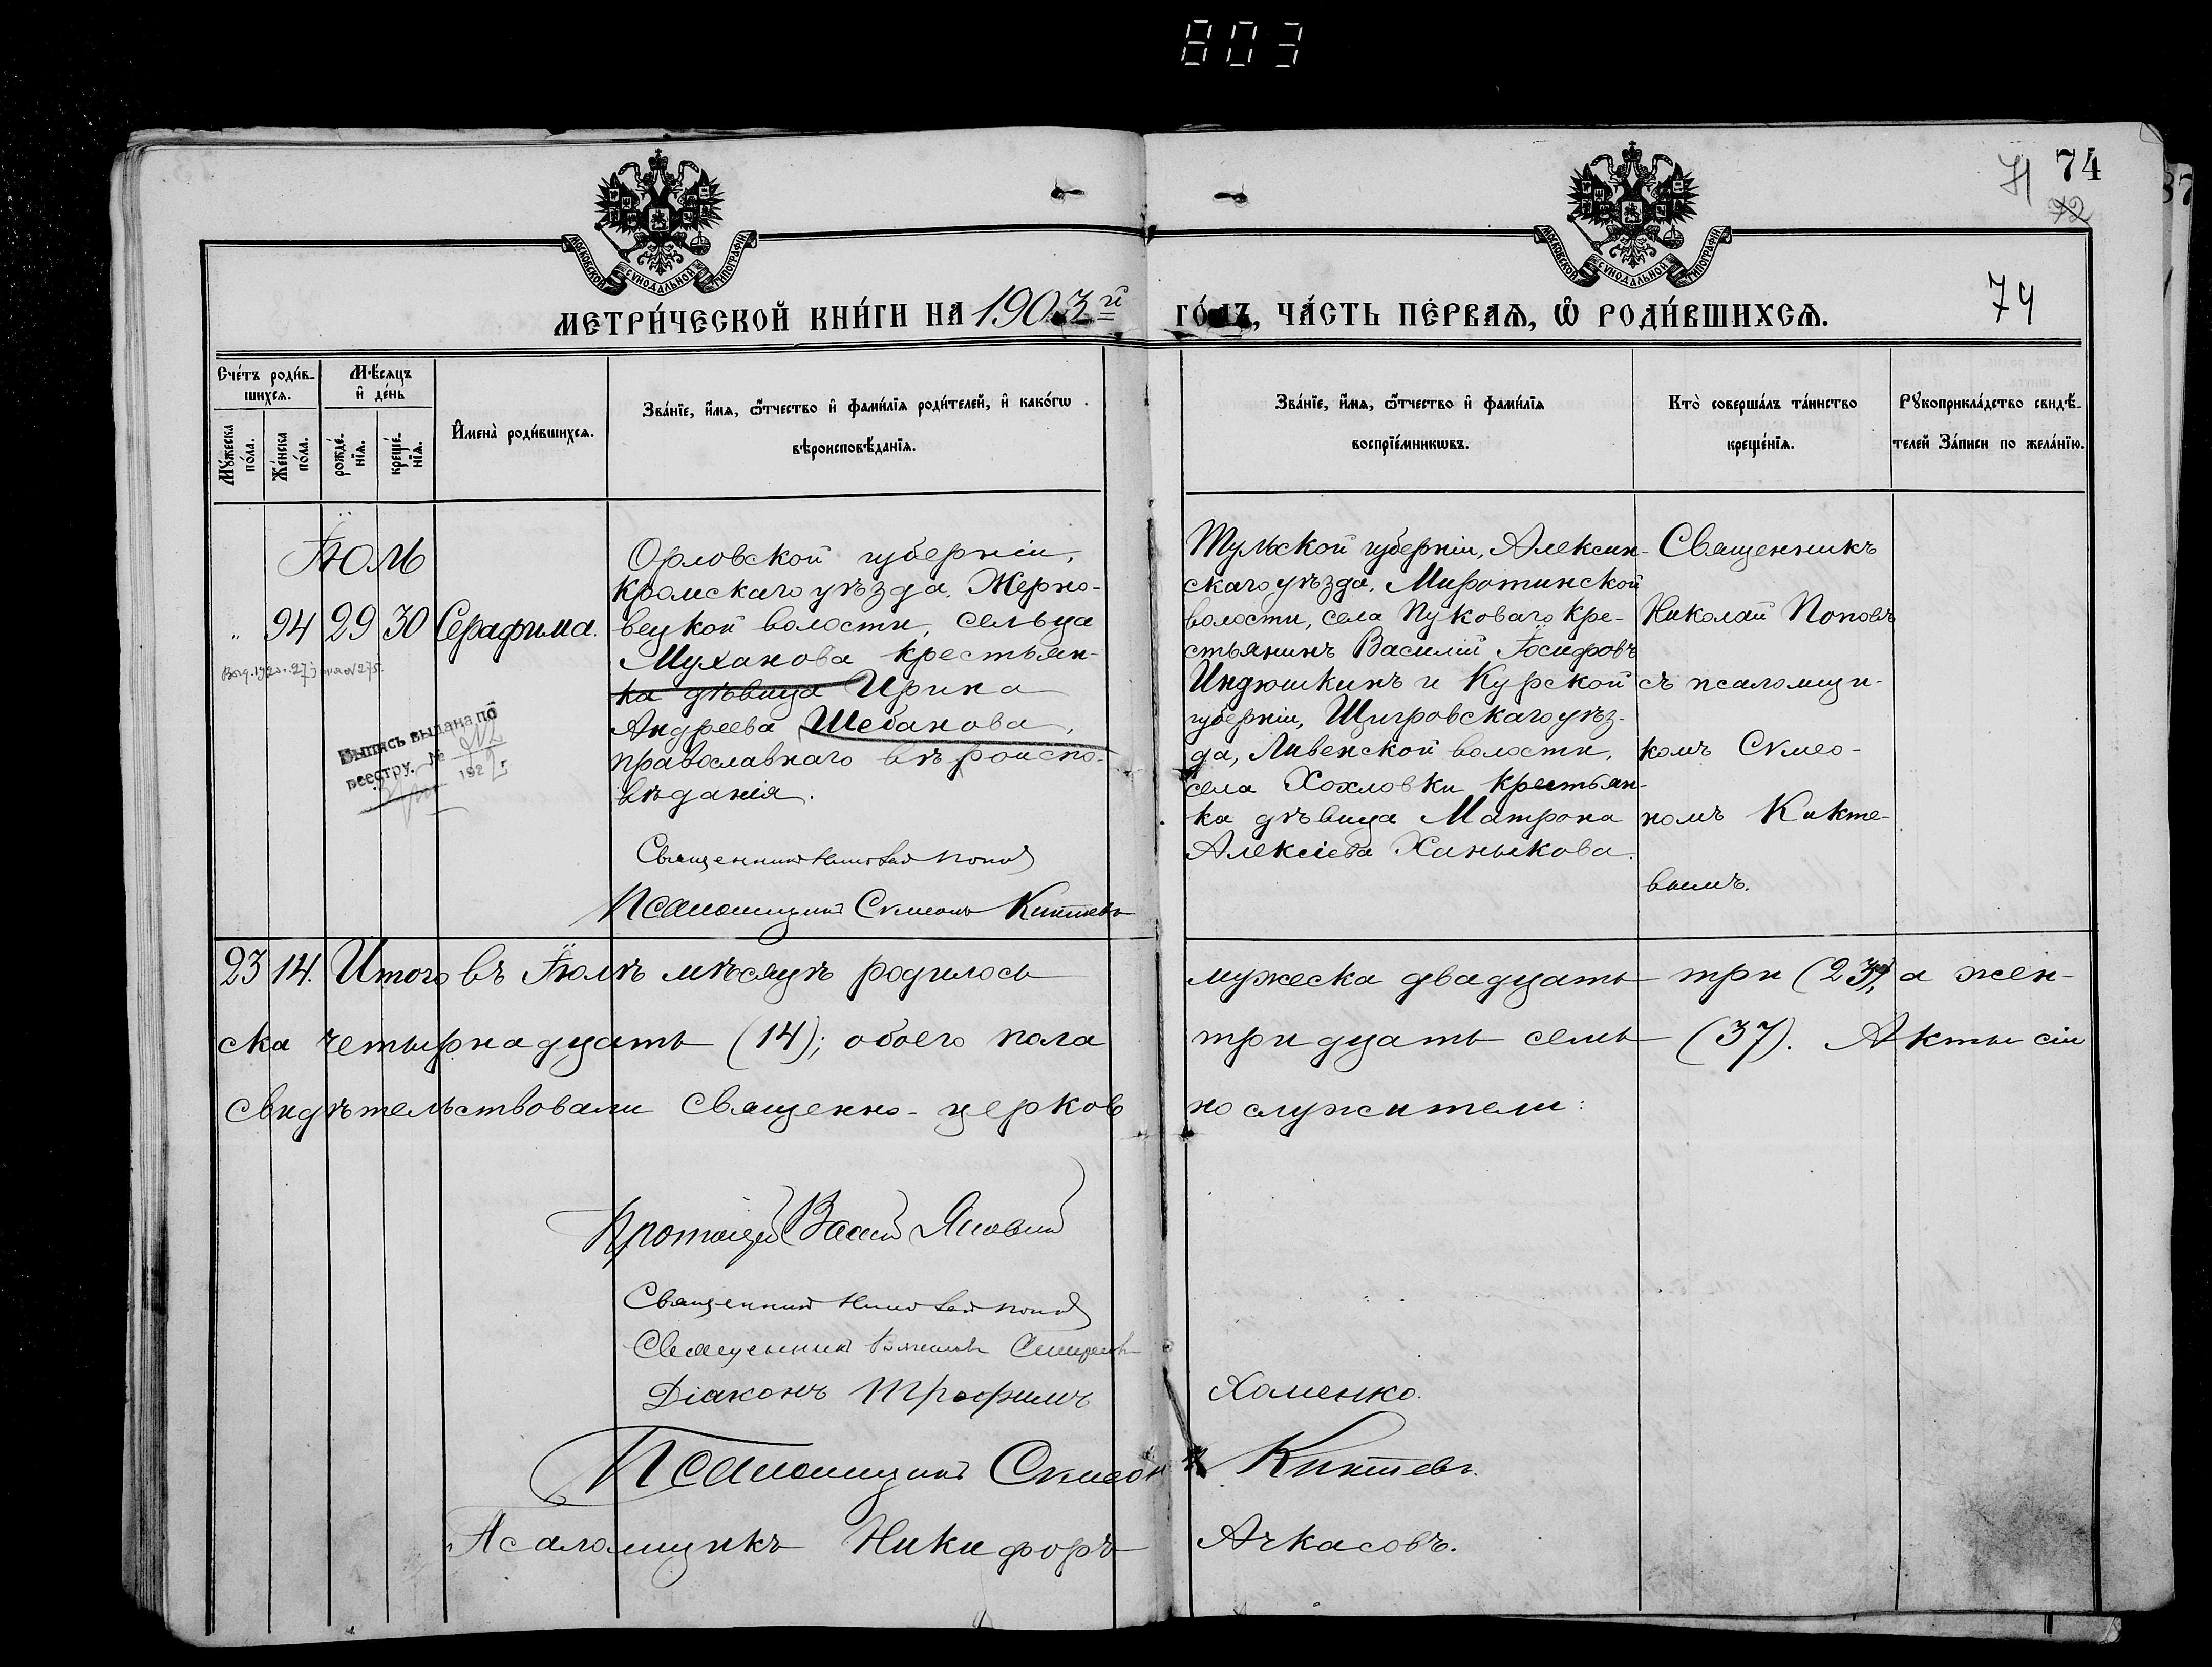 803
74
71
72
74
МОСКОВСКОЙ СѴНОДАЛЬНОЙ ТИПОГРАФІИ
МОСКОВСКОЙ СѴНОДАЛЬНОЙ ТИПОГРАФІИ
МЕТРИ́ЧЕСКОЙ КНИ́ГИ НА 1903й
ГО́ДЪ, ЧА́СТЬ ПЕ́РВАѦ, Ѡ҆ РОДИ́ВШИХСѦ.
Сче́тъ роди́в-
шихсѧ.
Мѣ́сяцъ
и҆ де́нь
Мꙋ́жеска по́ла.
Же́нска по́ла.
рожде́-нїѧ.
креще́-нїѧ.
И҆мена̀ роди́вшихсѧ.
Зва́нїе, и҆́мѧ, ѻ҆́тчество и҆ фами́лїѧ роди́телей, и҆ како́гѡ
вѣроисповѣ́данїѧ.
Зва́нїе, и҆́мѧ, ѻ҆́тчество и҆ фами́лїѧ
воспрїе́мникѡвъ.
Кто̀ соверша́лъ та́инство
креще́нїѧ.
Рꙋкоприкла́дство свидѣ́-
телей За́писи по жела́нїю.
Іюль
" 94 29 30 Серафима.
Орловской губерніи,
Кромскаго уѣзда, Жерно-
вецкой волости, сельца
Муханова крестьян-
ка дѣвица Ирина
Андреева Шебанова,
православнаго вѣроиспо-
вѣданія.
Священникъ Николай Поповъ
Псаломщикъ Сѵмеонъ Киктевъ
Выпись выдана по
реестру. №
1925
Тульской губерніи, Алексин-
скаго уѣзда, Миротинской
волости, села Пуковаго кре-
стьянинъ Василій Іосифовъ
Индюшкинъ и Курской
губерніи, Щигровскаго уѣз-
да, Ливенской волости,
села Хохловки крестьян-
ка дѣвица Матрона
Алексіева Ханыкова.
Священникъ
Николай Поповъ
съ псаломщи-
комъ Сѵмео-
номъ Кикте-
вымъ.
23 14. Итого въ Іюлѣ мѣсяцѣ родилось мужеска двадцать три (23), а жен-
ска четырнадцать (14); обоего пола тридцать семь (37). Акты сіи
свидѣтельствовали священно-церков нослужители:
Протоіерей Василій
Священникъ Николай Поповъ
Священникъ
Діаконъ Трофимъ Хоменко.
Псаломщикъ Сѵмеонъ Киктевъ.
Псаломщикъ Никифоръ Ачкасовъ.